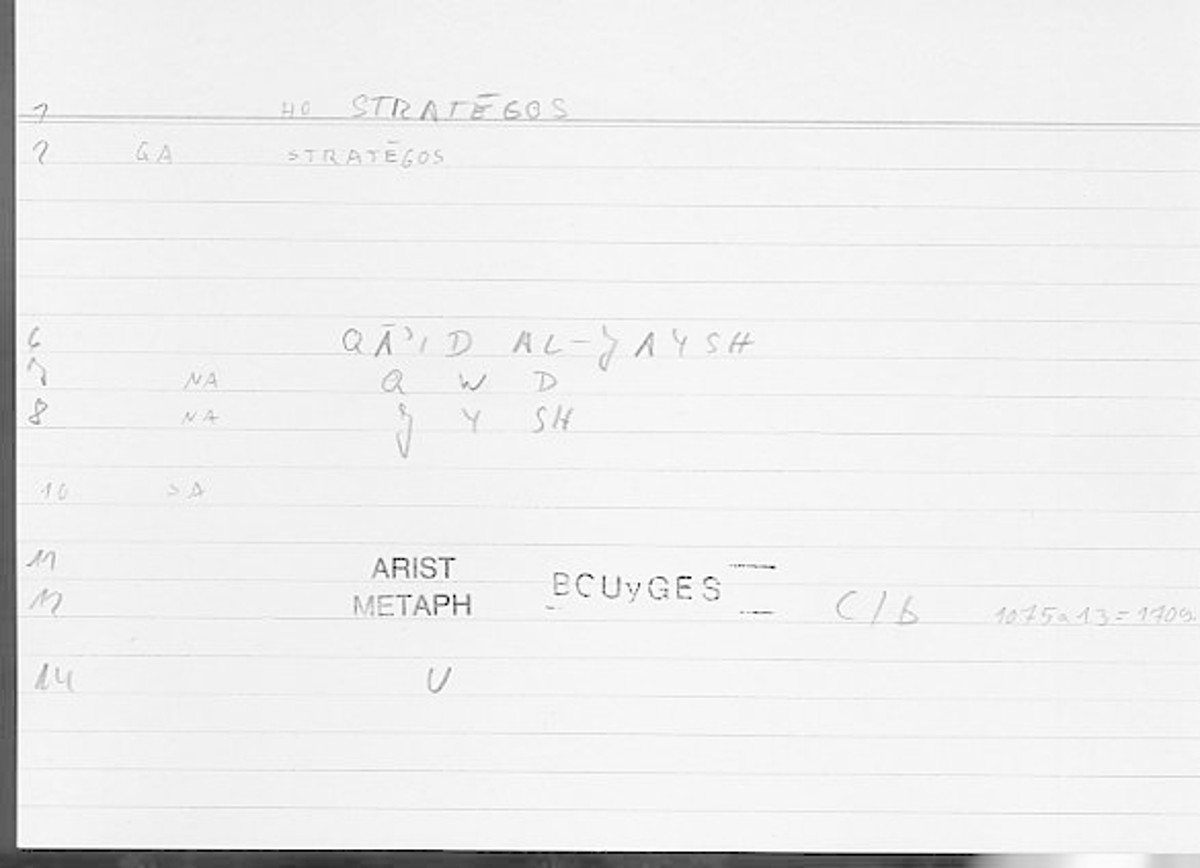 1 HO STRATĒGOS
2 GA STRATĒGOS
6 QĀʾID AL-ǦAYSH
7 NA Q W D
8 NA Ǧ Y SH
10 SA
11 ARIST BOUyGES
12 METAPH C/b 1075a13=1709.
14 U